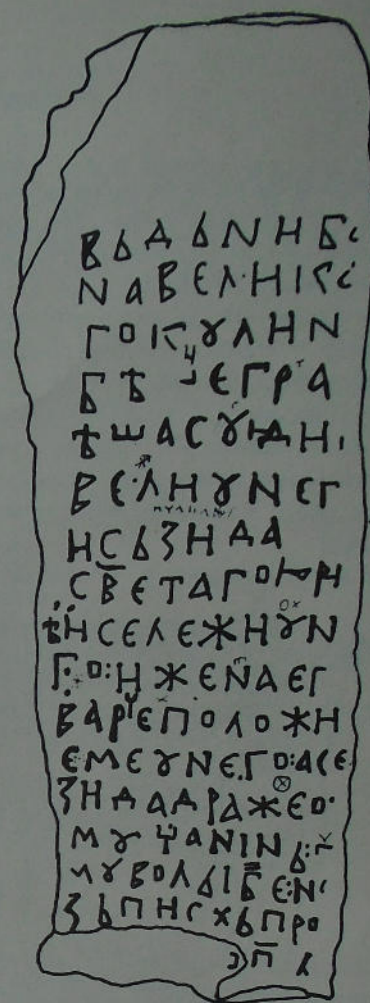 ВЬДЬNНБ
NАВЕЛНК
ГОКꙋЛНN
БѢ ЕГРА
ѢШАСꙋДН
ВЕЛНꙋNЕГ
НСЬЗНДА
СВЕТАГОЮРН
ѢНСЕЛЕЖНꙋN
Г:О:НЖЕNАЕГ
ВАРЕПОЛОЖН
ЕМЕꙋNЕГО:АСЕ
ЗНДАДРАЖЕО·
МꙋЧАNIN Ь:
МꙋВОЛЬIБЕ:N
ЗЬПНСХЬПРО
П